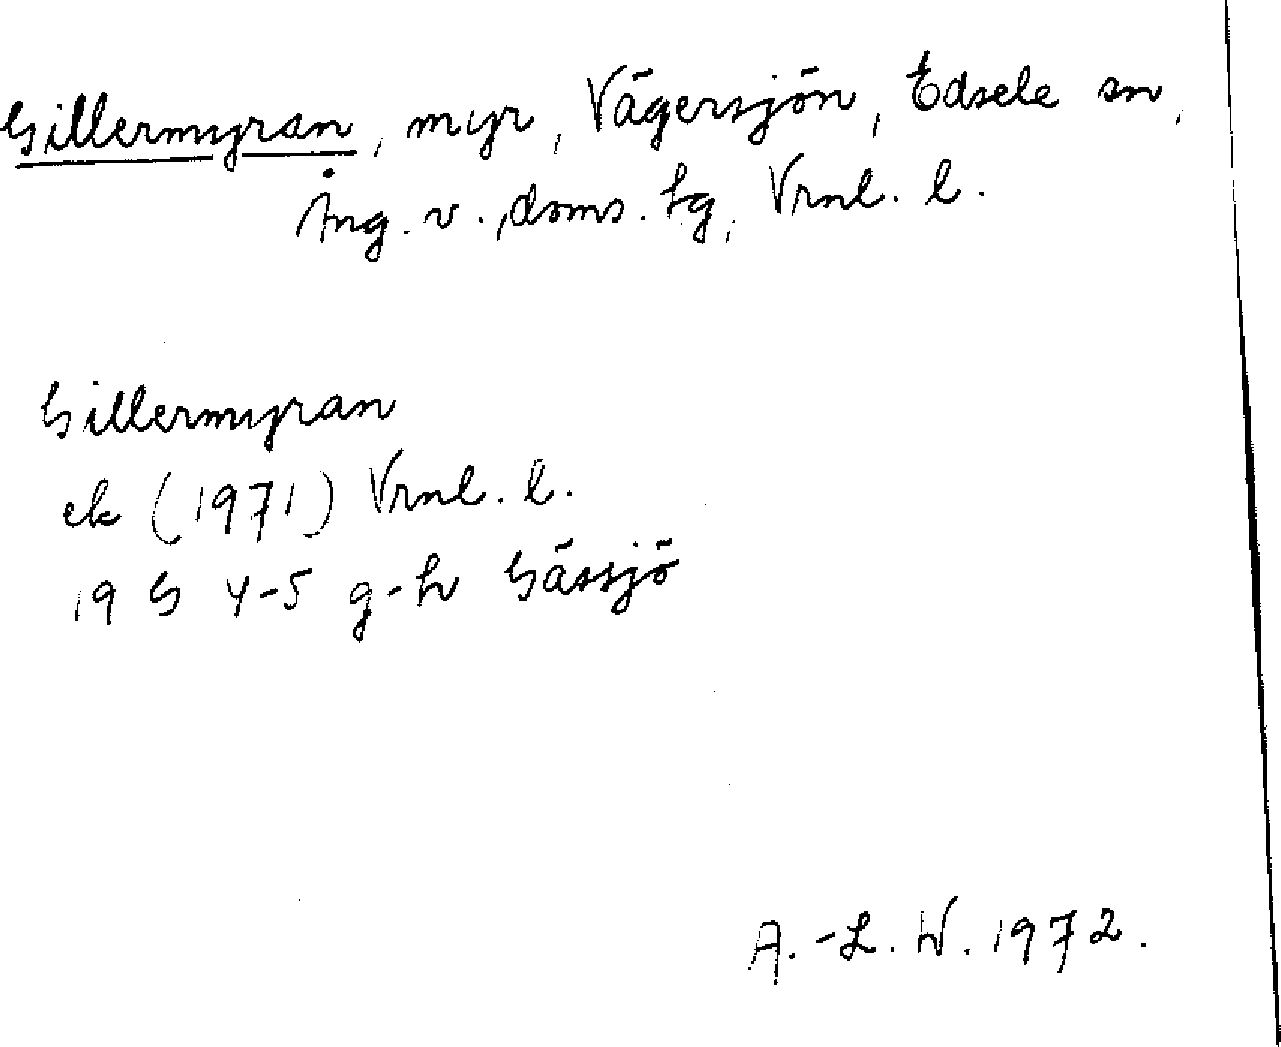 Gillermyran, myr, Vägersjön, Edsele sn,
Ång. v., doms. tg, Vrnl. l.
Gillermyran
ek (1971) Vrnl. l.
19 G 4-5 g-h Gässjö
A.-L. W. 1972.